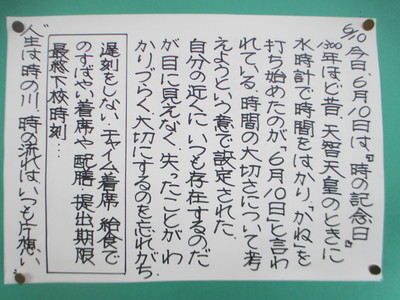 6/10 今日、6月10日は、『時の記念日』
1300年ほど昔、天智天皇のときに
水時計で時間をはかり、「かね」を
打ち始めたのが「6月10日」と言わ
れている。時間の大切さについて考
えようという意で設定された。
自分の近くに、いつも存在するのだ
が目に見えなく、失ったことがわ
かりづらく、大切にするのを忘れがち。
遅刻をしない、チャイム着席、給食で
のすばやい着席や配膳、提出期限
最終下校時刻…
"人生は時の川、時の流れはいつも片想い"